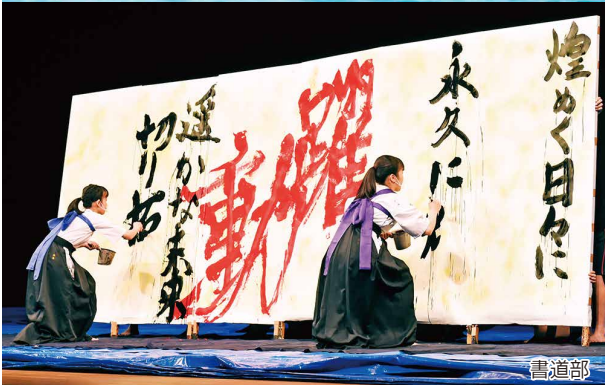 煌めく日々に
永久に
躍動
遥かな未来
切り拓
書道部